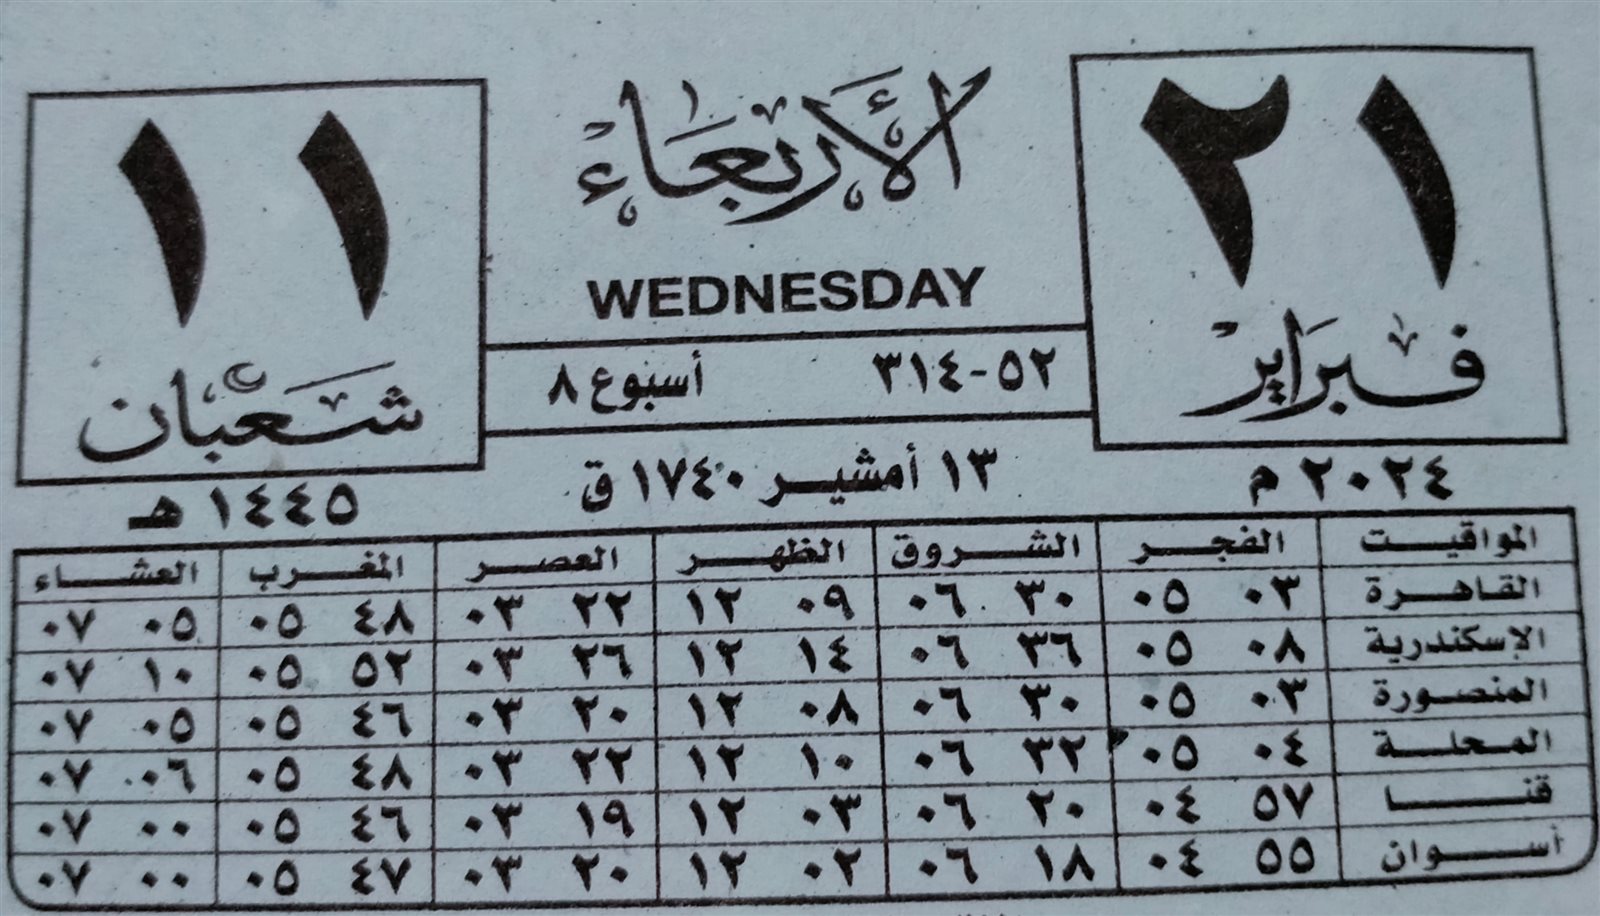 ٢١ الأربعاء ١١
فبراير WEDNESDAY شعبان
٥٢-٣١٤ أسبوع ٨
٢٠٢٤ م ١٣ أمشير ١٧٤٠ ق ١٤٤٥ هـ
المواقيت الفجر الشروق الظهر العصر المغرب العشاء
القاهرة ٠٣ ٠٥ ٣٠ ٠٦ ٠٩ ١٢ ٢٢ ٠٣ ٤٨ ٠٥ ٠٥ ٠٧
الإسكندرية ٠٨ ٠٥ ٣٦ ٠٦ ١٤ ١٢ ٢٦ ٠٣ ٥٢ ٠٥ ١٠ ٠٧
المنصورة ٠٣ ٠٥ ٣٠ ٠٦ ٠٨ ١٢ ٢٠ ٠٣ ٤٦ ٠٥ ٠٥ ٠٧
المحلة ٠٤ ٠٥ ٣٢ ٠٦ ١٠ ١٢ ٢٢ ٠٣ ٤٨ ٠٥ ٠٦ ٠٧
قنا ٥٧ ٠٤ ٢٠ ٠٦ ٠٣ ١٢ ١٩ ٠٣ ٤٦ ٠٥ ٠٠ ٠٧
أسوان ٥٥ ٠٤ ١٨ ٠٦ ٠٢ ١٢ ٢٠ ٠٣ ٤٧ ٠٥ ٠٠ ٠٧